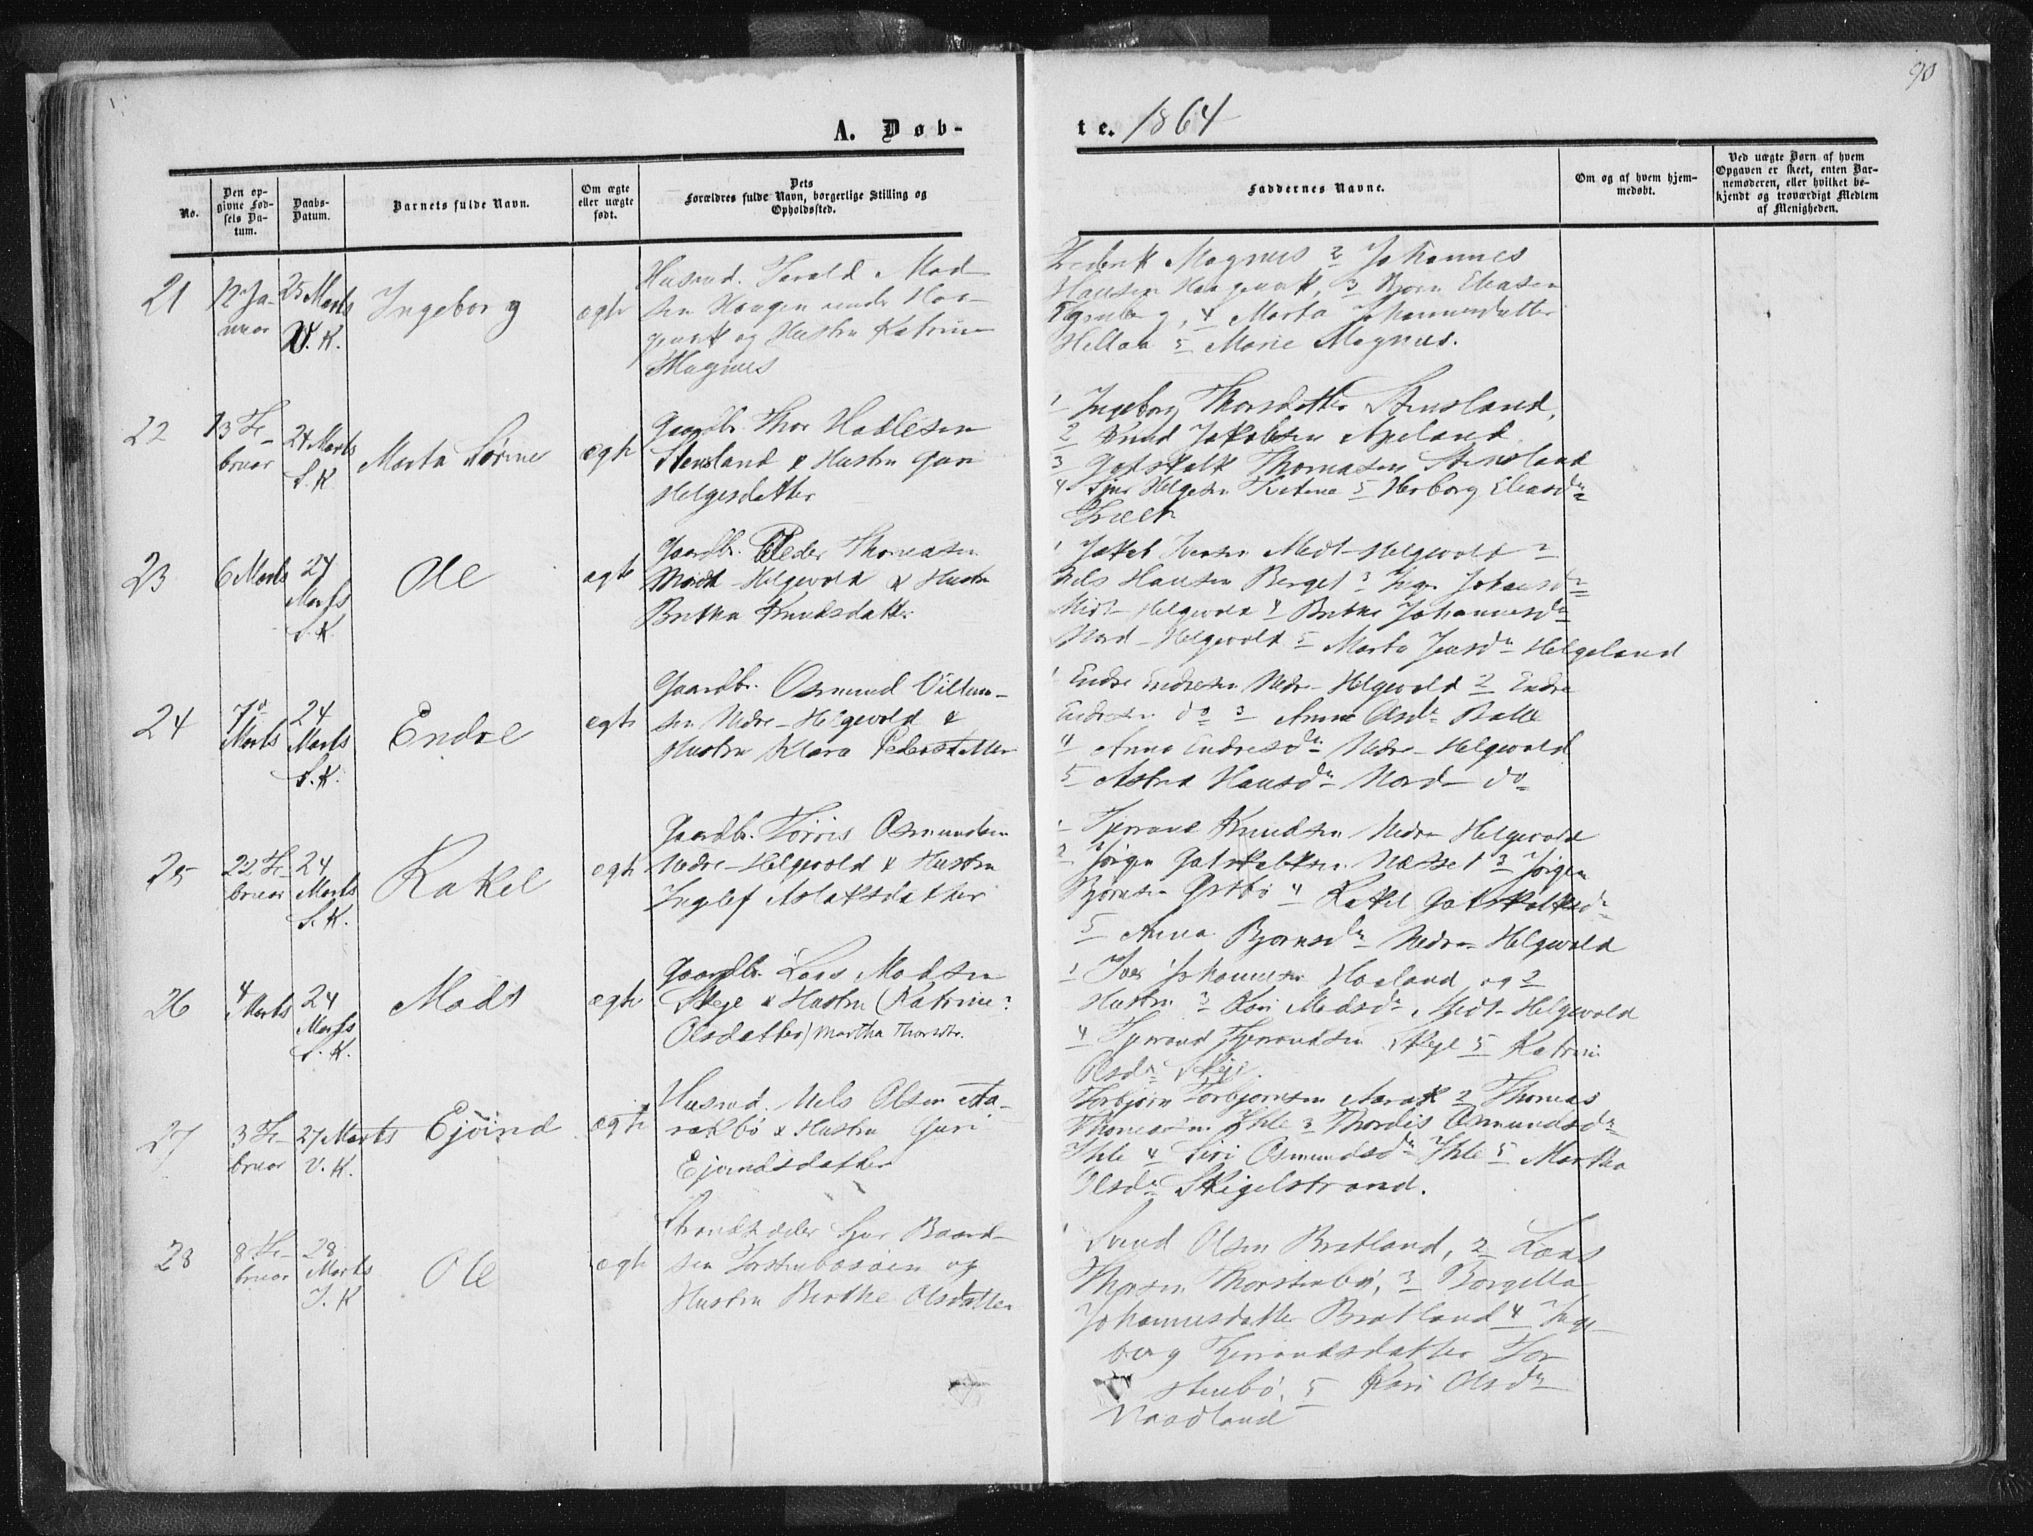 90
A. Døb-
te. 1864
No.
Den op-
givne Fød-
sels Da-
tum.
Daabs-
Datum.
Barnets fulde Navn.
Om ægte
eller uægte
født.
Dets
Forældres fulde Navn, borgerlige Stilling og
Opholdssted.
Faddernes Navne.
Om og af hvem hjem-
medøbt.
Ved uægte Børn af hvem
Opgaven er skeet, enten Bar-
nemoderen, eller hvilket be-
kjendt og troværdigt Medlem
af Menigheden.
21
12 Ja-
nuar
25 Marts
V. K.
Ingeborg
ægte
Husmd. Mad-
sen Haugen under
og Hustru Katrine
Magnus
Frederik Magnus 2 Johannes
Hansen 3 Bjørn Eliasen
4 Marta Johannesdatter
5 Marie Magnus.
22
13 Fe-
bruar
24 Marts
S. K
Marta Sørine
ægte
Gaardbr. Thor Hadlesen
Stensland & Hustru Guri
Helgesdatter
1 Ingeborg Thorsdatter Stensland,
2 Knud Jakobsen Apeland
3 Gotskalk Thomasen Stensland
4 Helgesen 5 Herborg Eliasdr
23
6 Marts
24
Marts
S. K.
Ole
ægte
Gaardbr. Peder Thomasen
Midt-Helgevold & Hustru
Britha Knudsdatt.
1 Jakob Midt-Helgevold 2
Nils Hansen Berget 3 Johansdr
Midt-Helgevold 4 Britha Johannesdr
Nord-Helgevold 5 Marta Jensdr Helgeland
24
7de
Marts
24
Marts
S. K.
Endre
ægte
Gaardbr. Osmund
sen Nedre-Helgevold &
Hustru Klara Pedersdatter
1 Endre Endresen Nedre-Helgevold 2 Endre
Endresen do 3 Anna Olsdr
4 Anna Endresdr Nedre-Helgevold
5 Astrid Hansdr Nord do
25
22 Fe-
bruar
24
Marts
S. K.
Rakel
ægte
Gaardbr. Tørris Osmundsen
Nedre-Helgevold & Hustru
Ingelef Aslaksdatter
1 Tjerand Knudsen Nedre Helgevold
2 Jørgen Gotskalksen Næsset 3 Jørgen
Bjørnsen Østbø 4 Rakel Gotskalksdr
5 Anna Bjørnsdr Nedre Helgevold
26
4
Marts
24
Marts
S. K.
Mads
ægte
Gaardbr. Lars Madsen
Skeje & Hustru (Katrine
Olsdatter) Martha Thorsdtr.
1 Iver Johannesen Haaland og 2
Hustru 3 Kari Madsdr Midt-Helgevold
4 Tjerand Tjerandsen Skeje 5 Katrine
Olsdr Skeje.
27
3 Fe-
bruar
27 Marts
V. K.
Ejvind
ægte
Husmd. Nils Olsen Aa-
rakbø & Hustru Guri
Ejvindsdatter
Torbjørn Torbjørnsen Aarak 2 Thomas
Thomasen Ihle 3 Thordis Osmundsdr
Ihle 4 Siri Osmundsdr Ihle 5 Martha
Olsdr Skigelstrand.
28
8 Fe-
bruar
28
Marts
J. K
Ole
ægte
Strandsidder Baard-
sen og
Hustru Berthe Olsdatter
1 Svend Olsen Bratland, 2 Lars
Thorsen Thorstenbø, 3 Borgilla
Johannesdatter Bratland 4 Inge-
borg Tjerandsdatter Tor-
stenbø, 5 Kari Olsdr
Vaadland